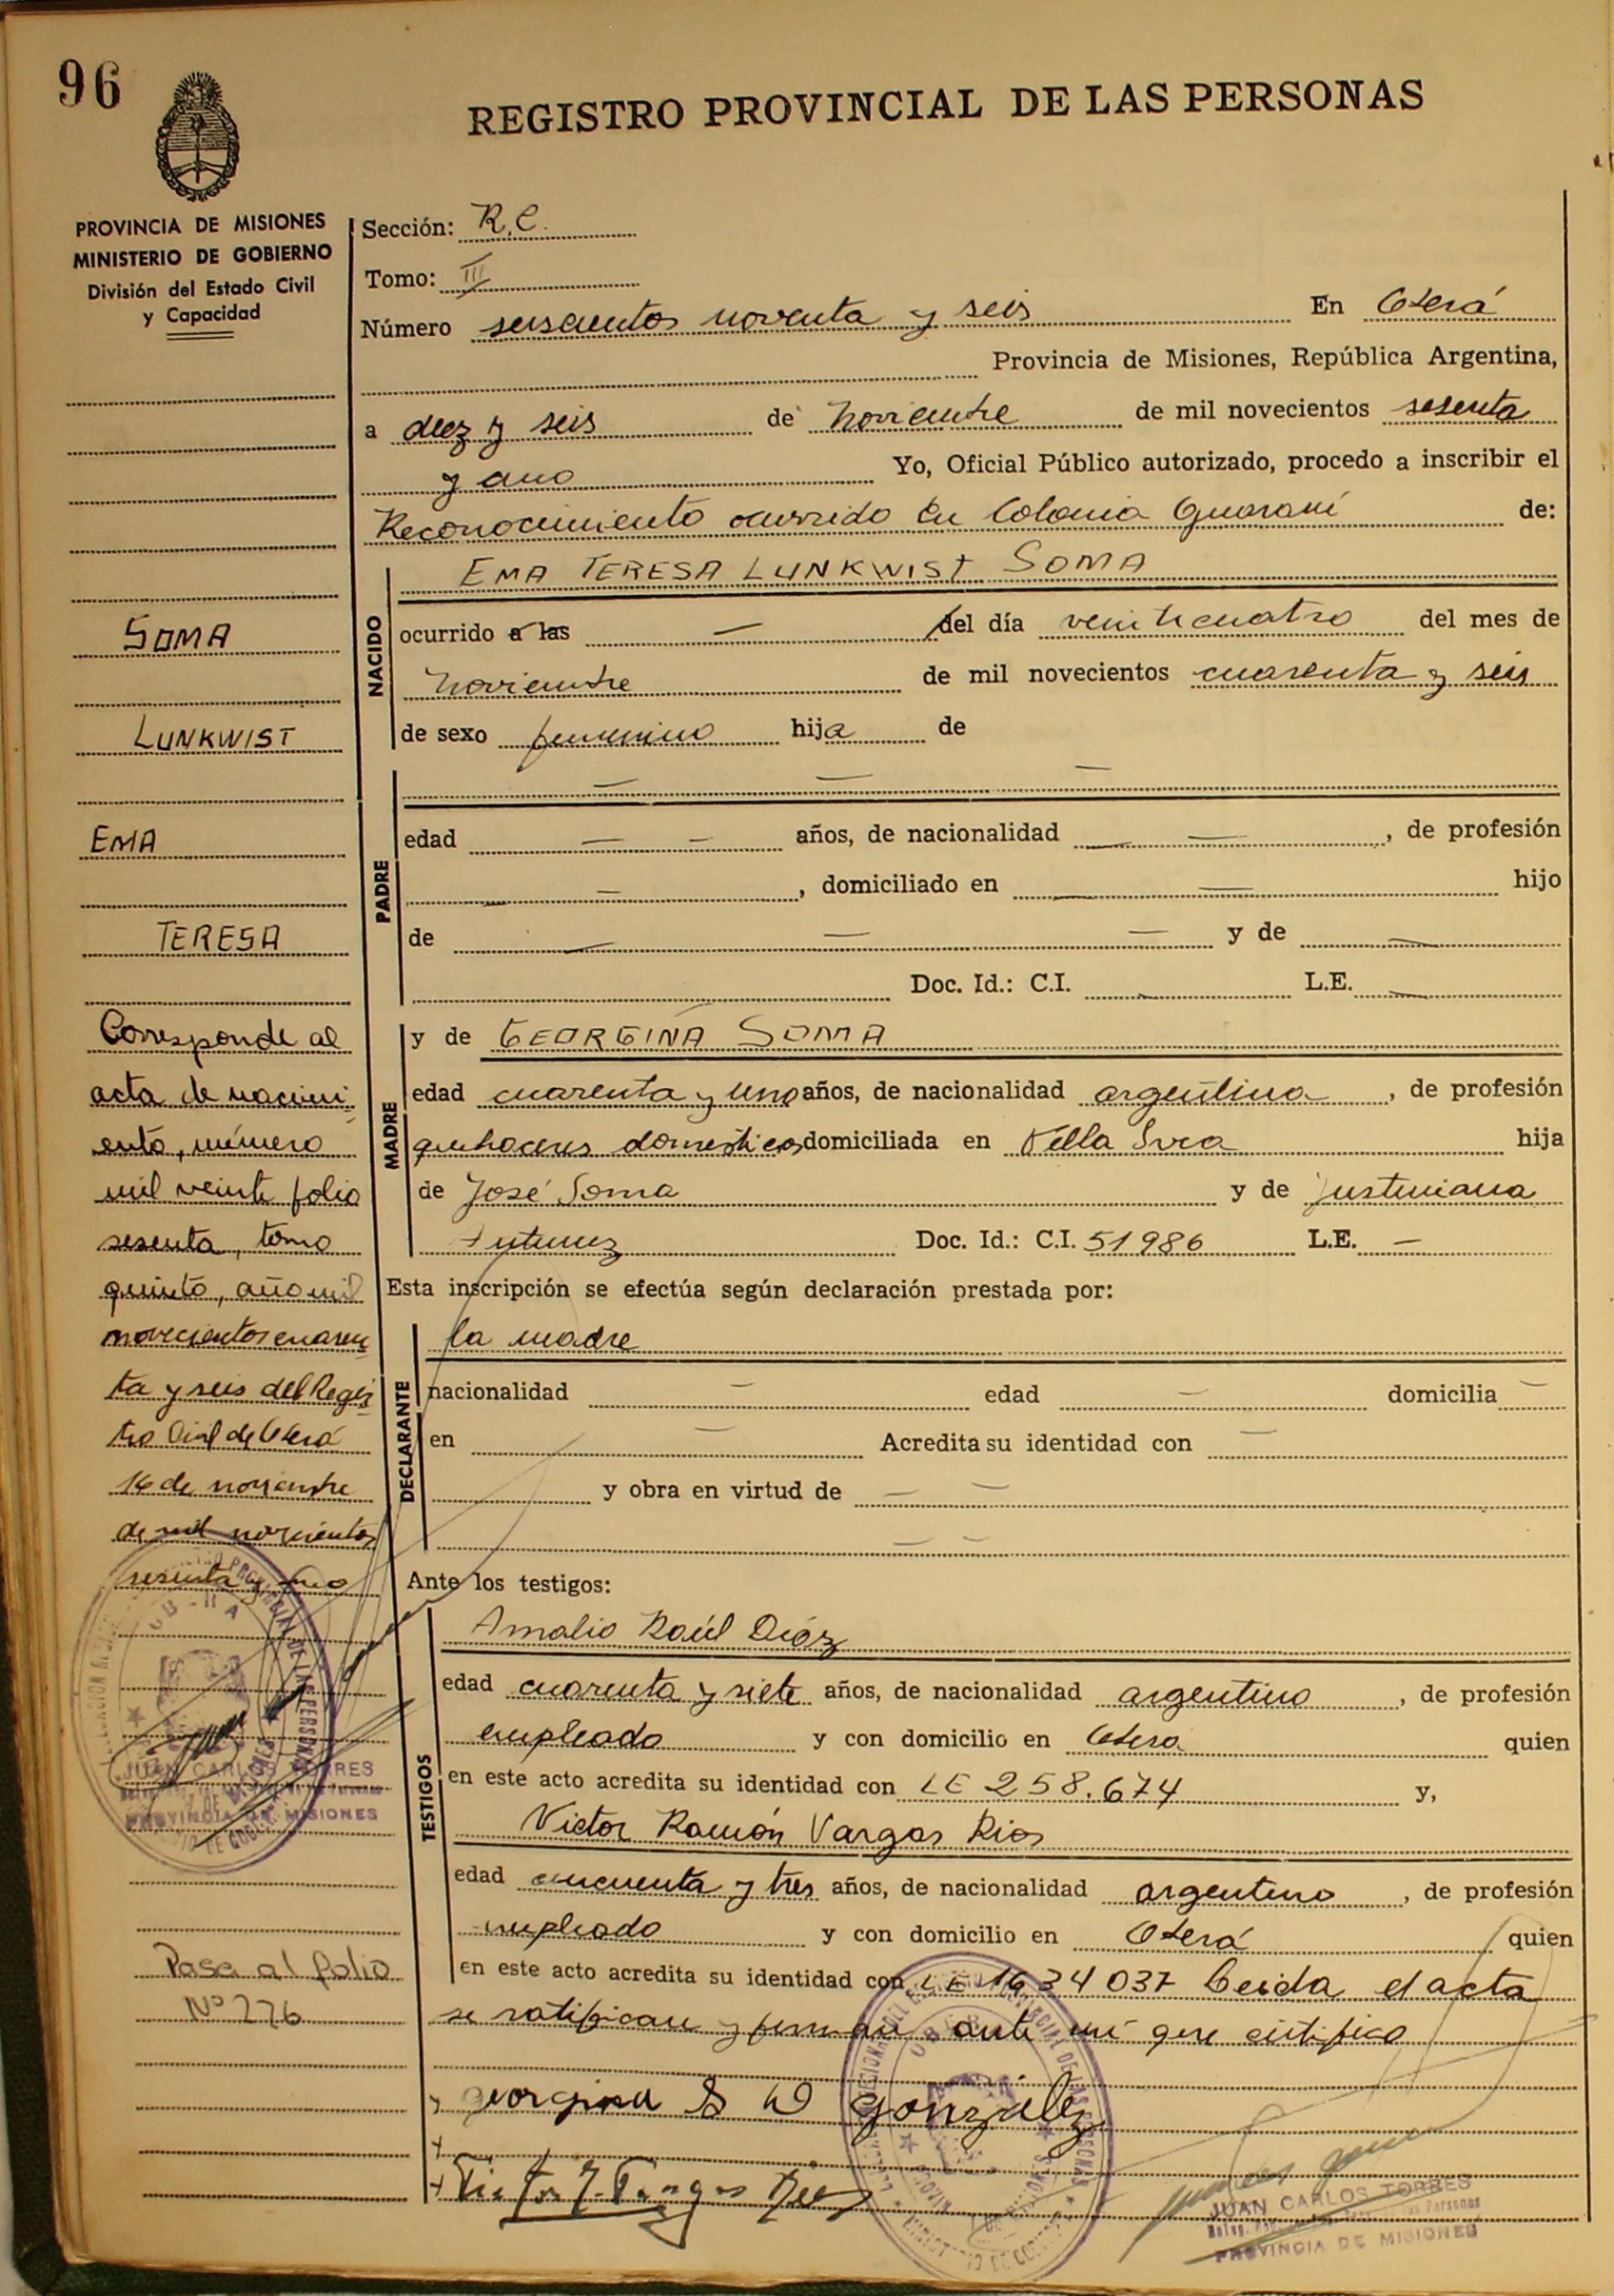 96
REGISTRO PROVINCIAL DE LAS PERSONAS
PROVINCIA DE MISIONES
MINISTERIO DE GOBIERNO
División del Estado Civil
y Capacidad
SOMA
LUNKWIST
EMA
TERESA
Corresponde al
acta de nacimi-
ento, número
mil veinte folio
sesenta, tomo
quinto, año mil
novecientos cuaren
ta y seis del Regis
tro Civil de Oberá
16 de noviembre
de mil novecientos
sesenta y uno
JUAN CARLOS TORRES
PROVINCIA DE MISIONES
Pasa al folio
Nº 276
Sección: R.C.
Tomo: III
Número seiscientos noventa y seis En Oberá
Provincia de Misiones, República Argentina,
a diez y seis de noviembre de mil novecientos sesenta
y uno Yo, Oficial Público autorizado, procedo a inscribir el
Reconocimiento ocurrido en Colonia Guaraní de:
NACIDO
EMA TERESA LUNKWIST SOMA
ocurrido a las — del día veinticuatro del mes de
noviembre de mil novecientos cuarenta y seis
de sexo femenino hija de
PADRE
— — —
edad — — años, de nacionalidad — , de profesión
— , domiciliado en — hijo
de — — — y de —
Doc. Id.: C.I. — L.E. —
MADRE
y de GEORGINA SOMA
edad cuarenta y uno años, de nacionalidad argentina , de profesión
quehaceres domesticos domiciliada en Villa Svea hija
de José Soma y de Justiniana
Doc. Id.: C.I. 51986 L.E. —
Esta inscripción se efectúa según declaración prestada por:
DECLARANTE
la madre
nacionalidad — edad — domicilia —
en — Acredita su identidad con —
y obra en virtud de — —
— —
Ante los testigos:
TESTIGOS
Amalio Raúl Díaz
edad cuarenta y siete años, de nacionalidad argentino , de profesión
empleado y con domicilio en Oberá quien
en este acto acredita su identidad con LE 258.674 y,
Victor Ramón Vargas Rios
edad cincuenta y tres años, de nacionalidad argentino , de profesión
empleado y con domicilio en Oberá quien
en este acto acredita su identidad con LE 1634037 Leida el acta
se ratifican y firman ante mí que certifico
georgina S D González
JUAN CARLOS TORRES
PROVINCIA DE MISIONES